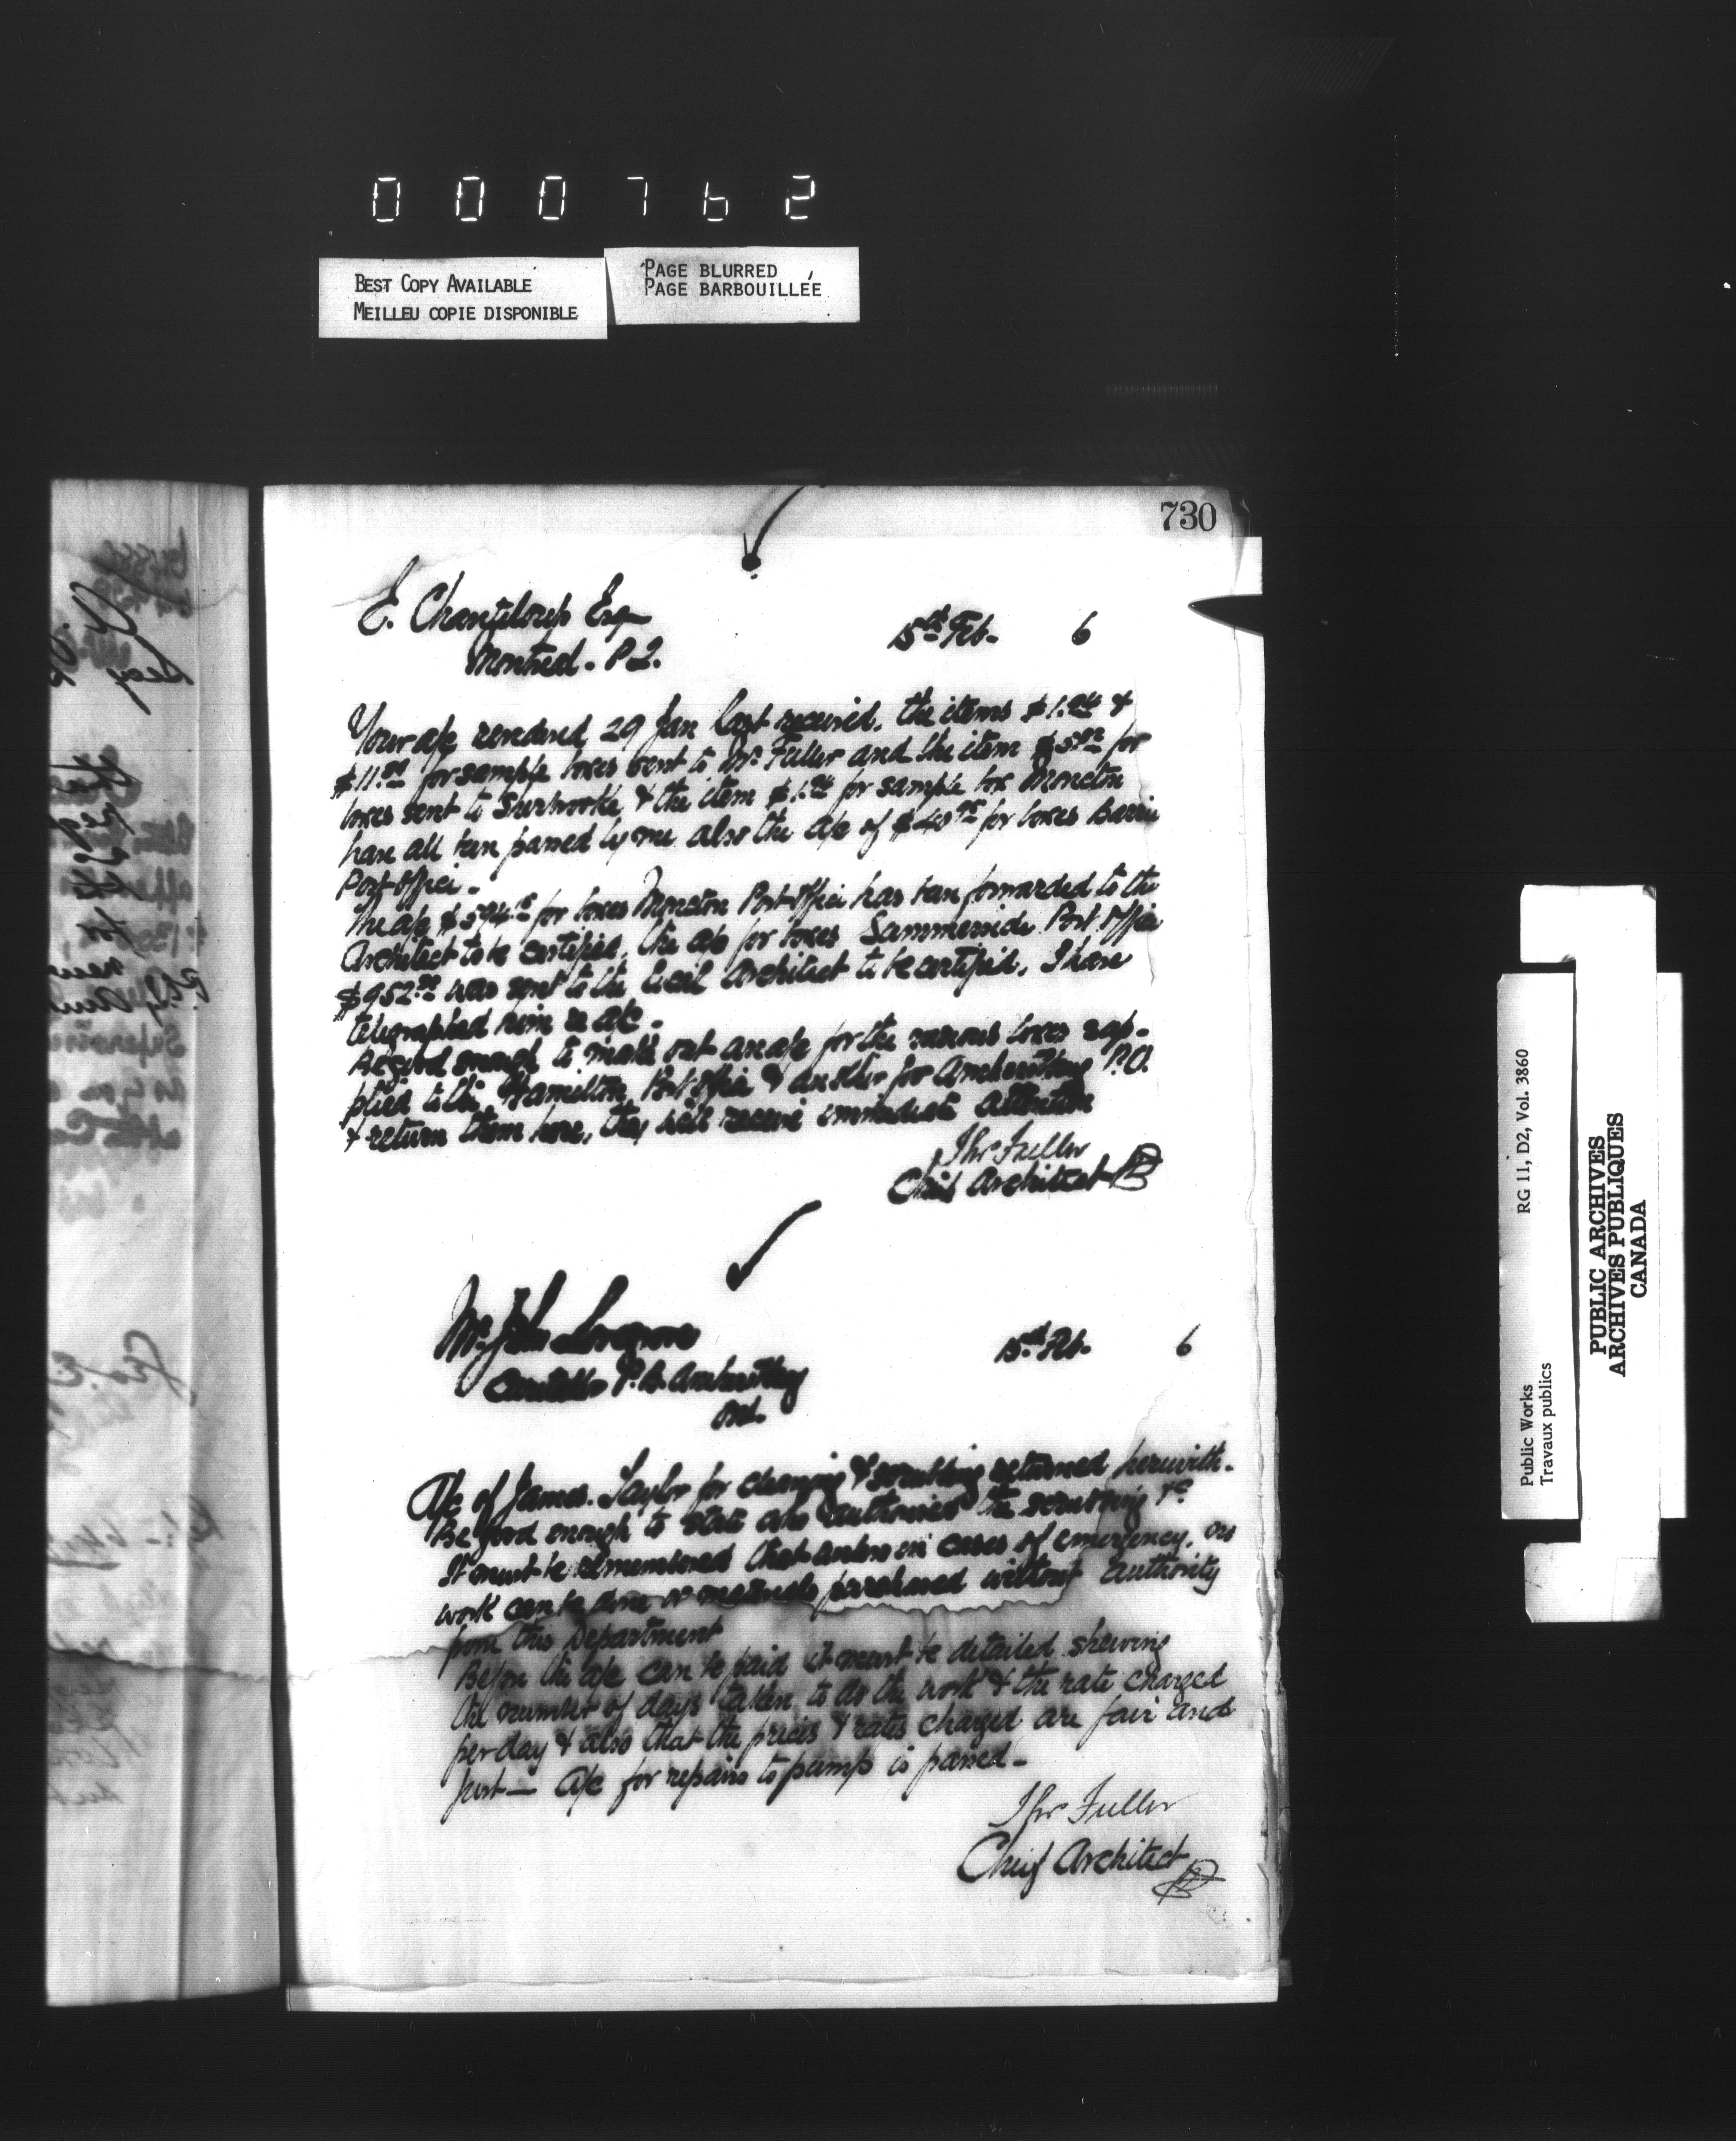 000762
BEST COPY AVAILABLE
MEILLEU COPIE DISPONIBLE
PAGE BLURRED
PAGE BARBOUILLÉE
730
E. Chanteloup Esq
Montreal. P.Q.
15th Feb. 6
Your a/c rendered 29 Jan last received. the items $1. &
$11.00 for sample boxes sent to Mr. Fuller and the item for
boxes sent to Sherbrooke & the item for sample box Moncton
have all been passed by me also the a/c of $40 for boxes Barrie
Post-office.
The a/c $594 for boxes Moncton Post-Office has been forwarded to the
Architect to be certified, the a/c for boxes Summerside Post Office
$952 was sent to the local Architect to be certified. I have
telegraphed him re a/c.
Be good enough to make out an a/c for the various boxes sup-
plied to the Hamilton Post-office & another for Amherstburg P.O.
& return them here, they will receive immediate attention
Thos Fuller
Chief Architect
Mr. John
Caretaker P.O. Amherstburg
Ont.
15th Feb. 6
A/c of James Taylor for cleaning & scrubbing returned herewith.
Be good enough to state who authorised the scrubbing &c
It must be remembered that unless in cases of emergency, no
work can be done or materials purchased without authority
from this Department
Before the a/c can be paid it must be detailed shewing
the number of days taken to do the work & the rate charged
per day & also that the prices & rates charged are fair and
just — A/c for repairs to pump is passed —
Thos Fuller
Chief Architect
Public Works
Travaux publics
RG 11, D2, Vol. 3860
PUBLIC ARCHIVES
ARCHIVES PUBLIQUES
CANADA